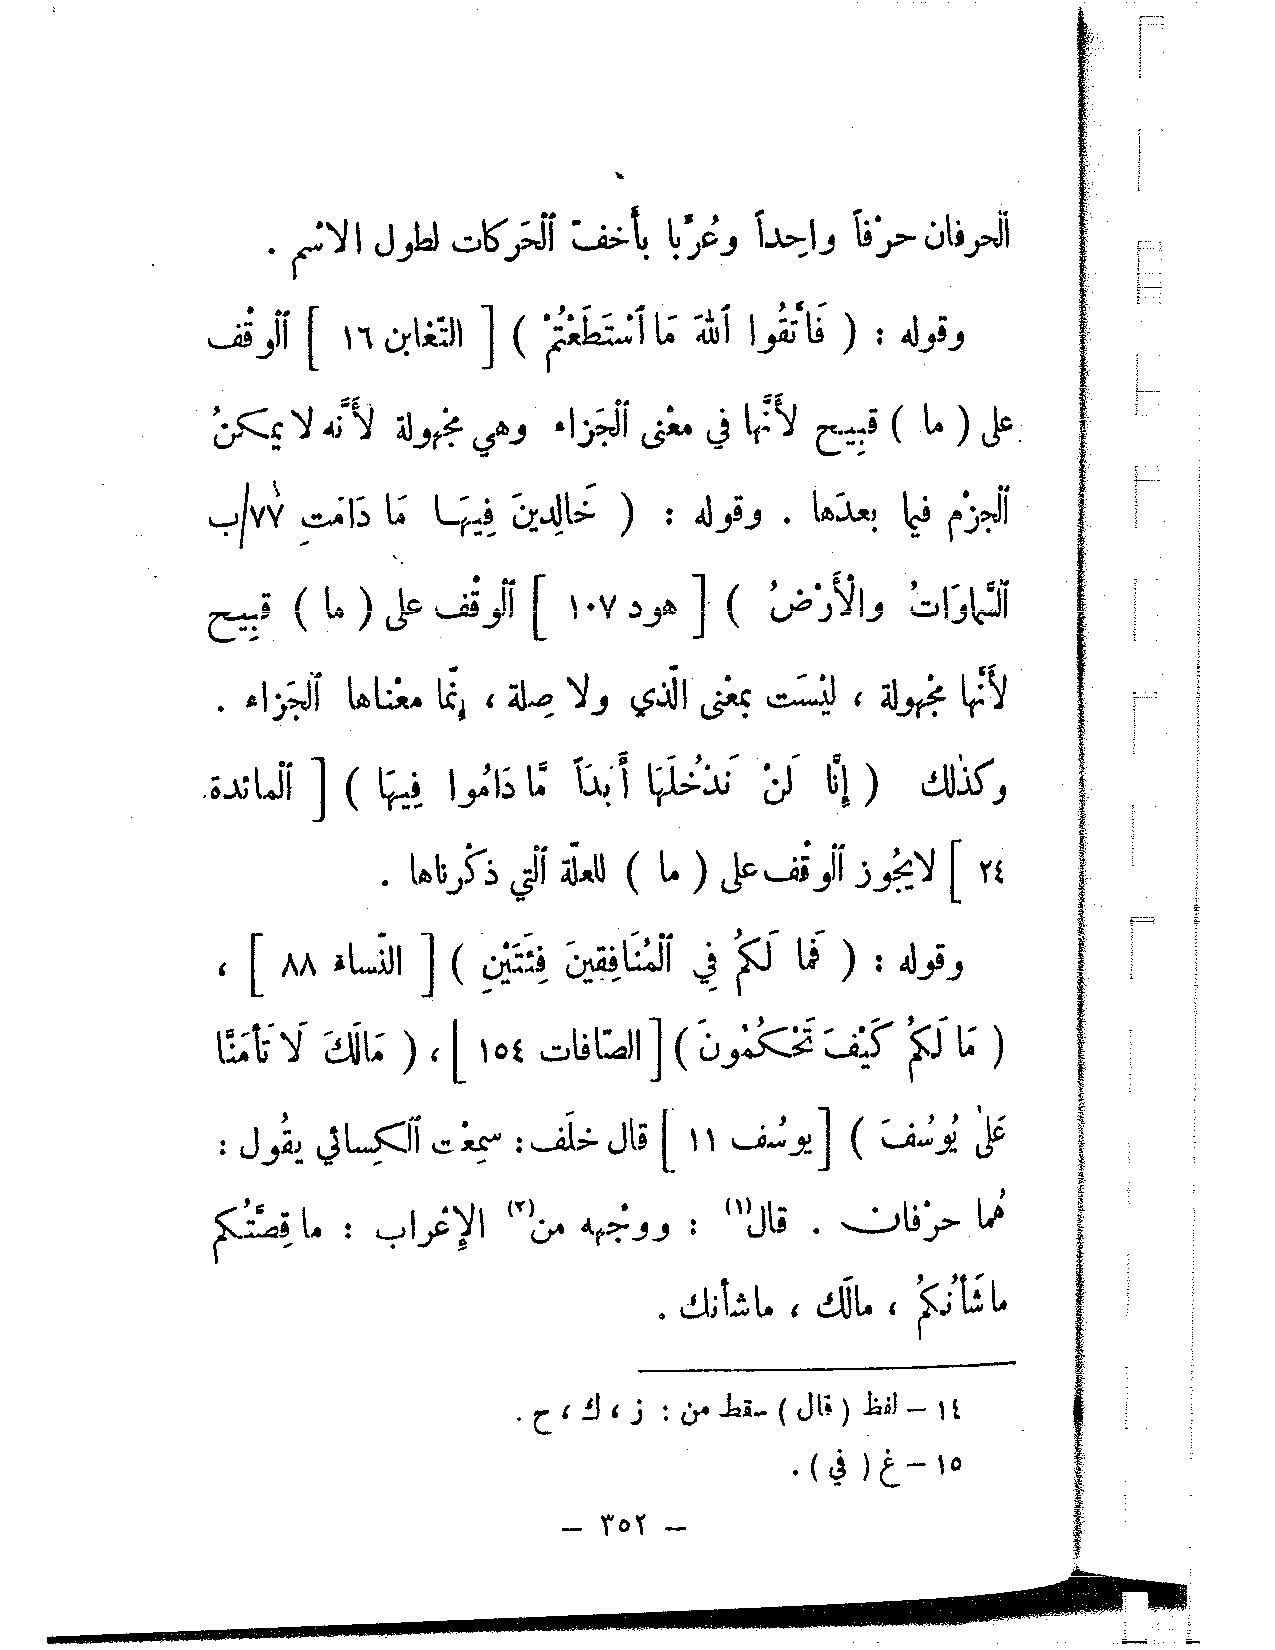 ٱلحرفان حرْفاً واحِداً وعُرِّبا بأخفّ ٱلحَركات لطول الاسْم .
وقوله : ( فَٱتَّقُوا ٱللهَ مَا ٱسْتَطَعْتُمْ ) [ التّغابن ١٦ ] ٱلوقْف
على ( ما ) قبِيح لأَنَّها في معْنى ٱلجَزاء وهي مجْهولة لأَنَّه لا يمكنُ
ٱلجزْم فيما بعدَها . وقوله : ( خَالِدينَ فِيهَا مَا دَامَتِ ٧٧/ب
ٱلسَّماوَاتُ والْأَرْضُ ) [ هود ١٠٧ ] ٱلوقْف على ( ما ) قبِيح
لأَنَّها مجْهولة ، ليْسَت بمعْنى الّذي ولا صِلة ، إنّما معْناها ٱلجَزاء .
وكذٰلك ( إِنَّا لَنْ نَدْخُلَهَا أَبَدَاً مَّا دَامُوا فِيهَا ) [ ٱلمائدة
٢٤ ] لا يجُوز ٱلوقْف على ( ما ) للعلّة ٱلتي ذكْرناها .
وقوله : ( فَمَا لَكُمْ فِي ٱلمُنَافِقينَ فِئَتَيْنِ ) [ النّساء ٨٨ ] ،
( مَا لَكُمْ كَيْفَ تَحْكُمُونَ ) [ الصّافات ١٥٤ ] ، ( مَالَكَ لَا تَأْمَنَّا
عَلىٰ يُوسُفَ ) [ يوسُف ١١ ] قال خلَف : سمِعْت ٱلكِسائي يقُول :
هُما حرْفان . قال(١) : ووجْهه من(٢) الإعْراب : ما قِصَّتُكم
ما شَأْنُكُمْ ، مالَك ، ما شأنك .
١٤ – لفظ ( قال ) سقط من : ز ، ك ، ح .
١٥ – غ ( في ) .
– ٣٥٢ –